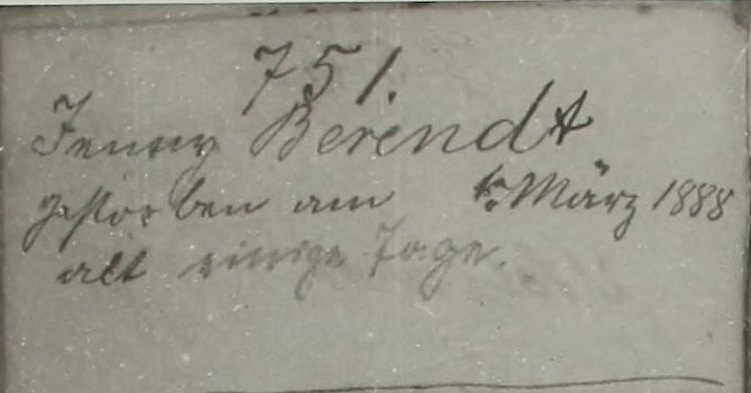 751.
Jenny Berendt
gestorben am März 1888
alt einige Tage.